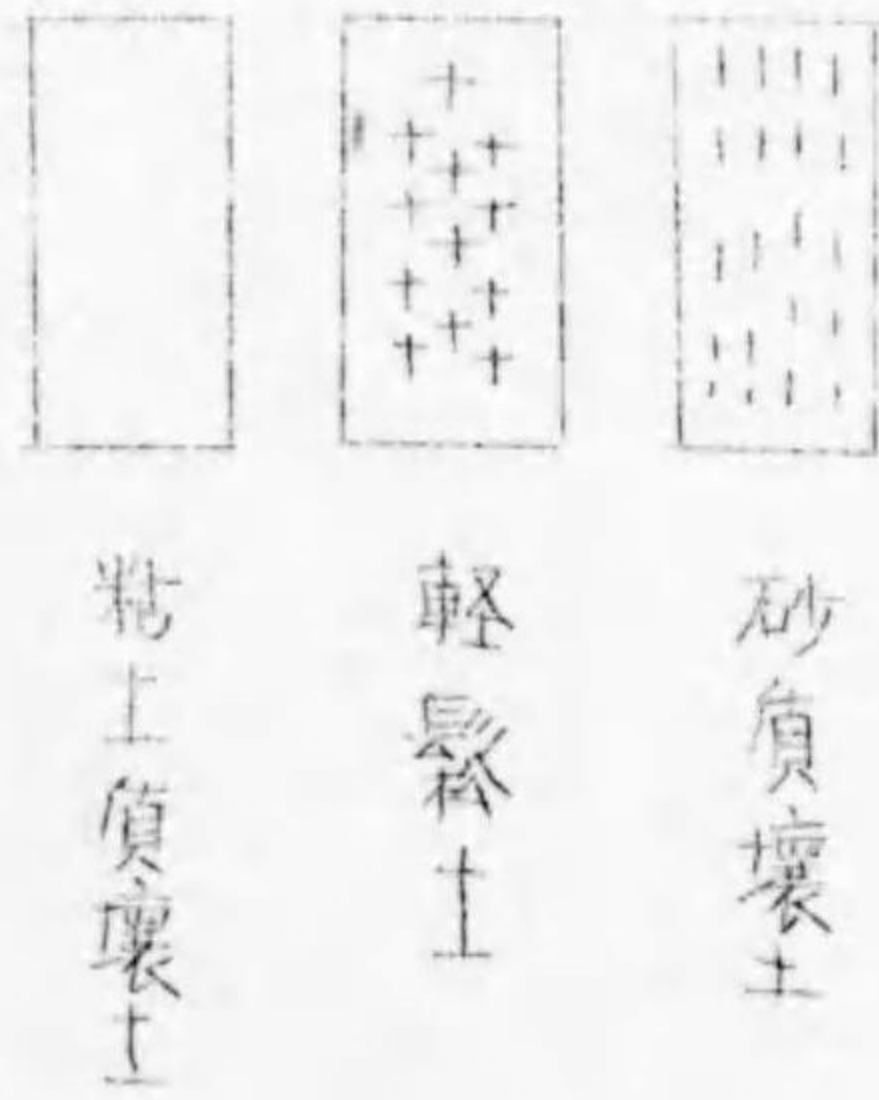 砂質壌土
軽鬆土
粘土質壌土